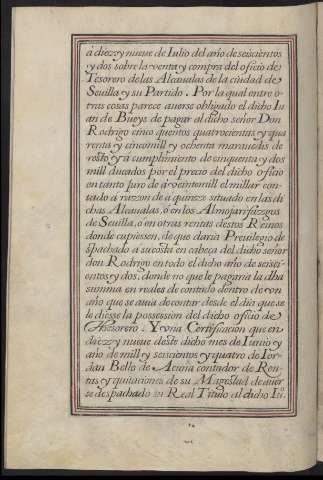 a diez y nueue de Iulio del año de seiscientos
y dos sobre la venta y compra del oficio de
Tesorero de las Alcaualas de la ciudad de
Seuilla y su Partido. Por la qual entre o-
tras cosas parece auerse obligado el dicho Iu
an de Bueys de pagar al dicho señor Don
Rodrigo cinco quentos quatrocientas y qua
renta y cinco mill y ochenta marauedis de
resto y a cumplimiento de cinquenta y dos
mill ducados por el precio del dicho oficio
en tanto juro de a veinte mill el millar con-
tado a razon de a quinze situado en las di
chas Alcaualas, ó en los Almojarifazgos
de Seuilla, ó en otras rentas destos Reinos
donde cupiessen, de que daria Preuilegio de
spachado a su costa en cabeça del dicho señor
don Rodrigo en todo el dicho año de seisci-
entos y dos, donde no que le pagaria la dha
summa en reales de contado dentro de vn
año que se auia de contar desde el dia que se
le diesse la possession del dicho oficio de
Thesorero. Y vna Certificacion que en
diez y nueue deste dicho mes de Iunio y
año de mill y seiscientos y quatro de Ior-
dan Bello de Acuña contador de Ren-
tas y quitaciones de su Magestad de auer
se despachado su Real Titulo al dicho Iu.